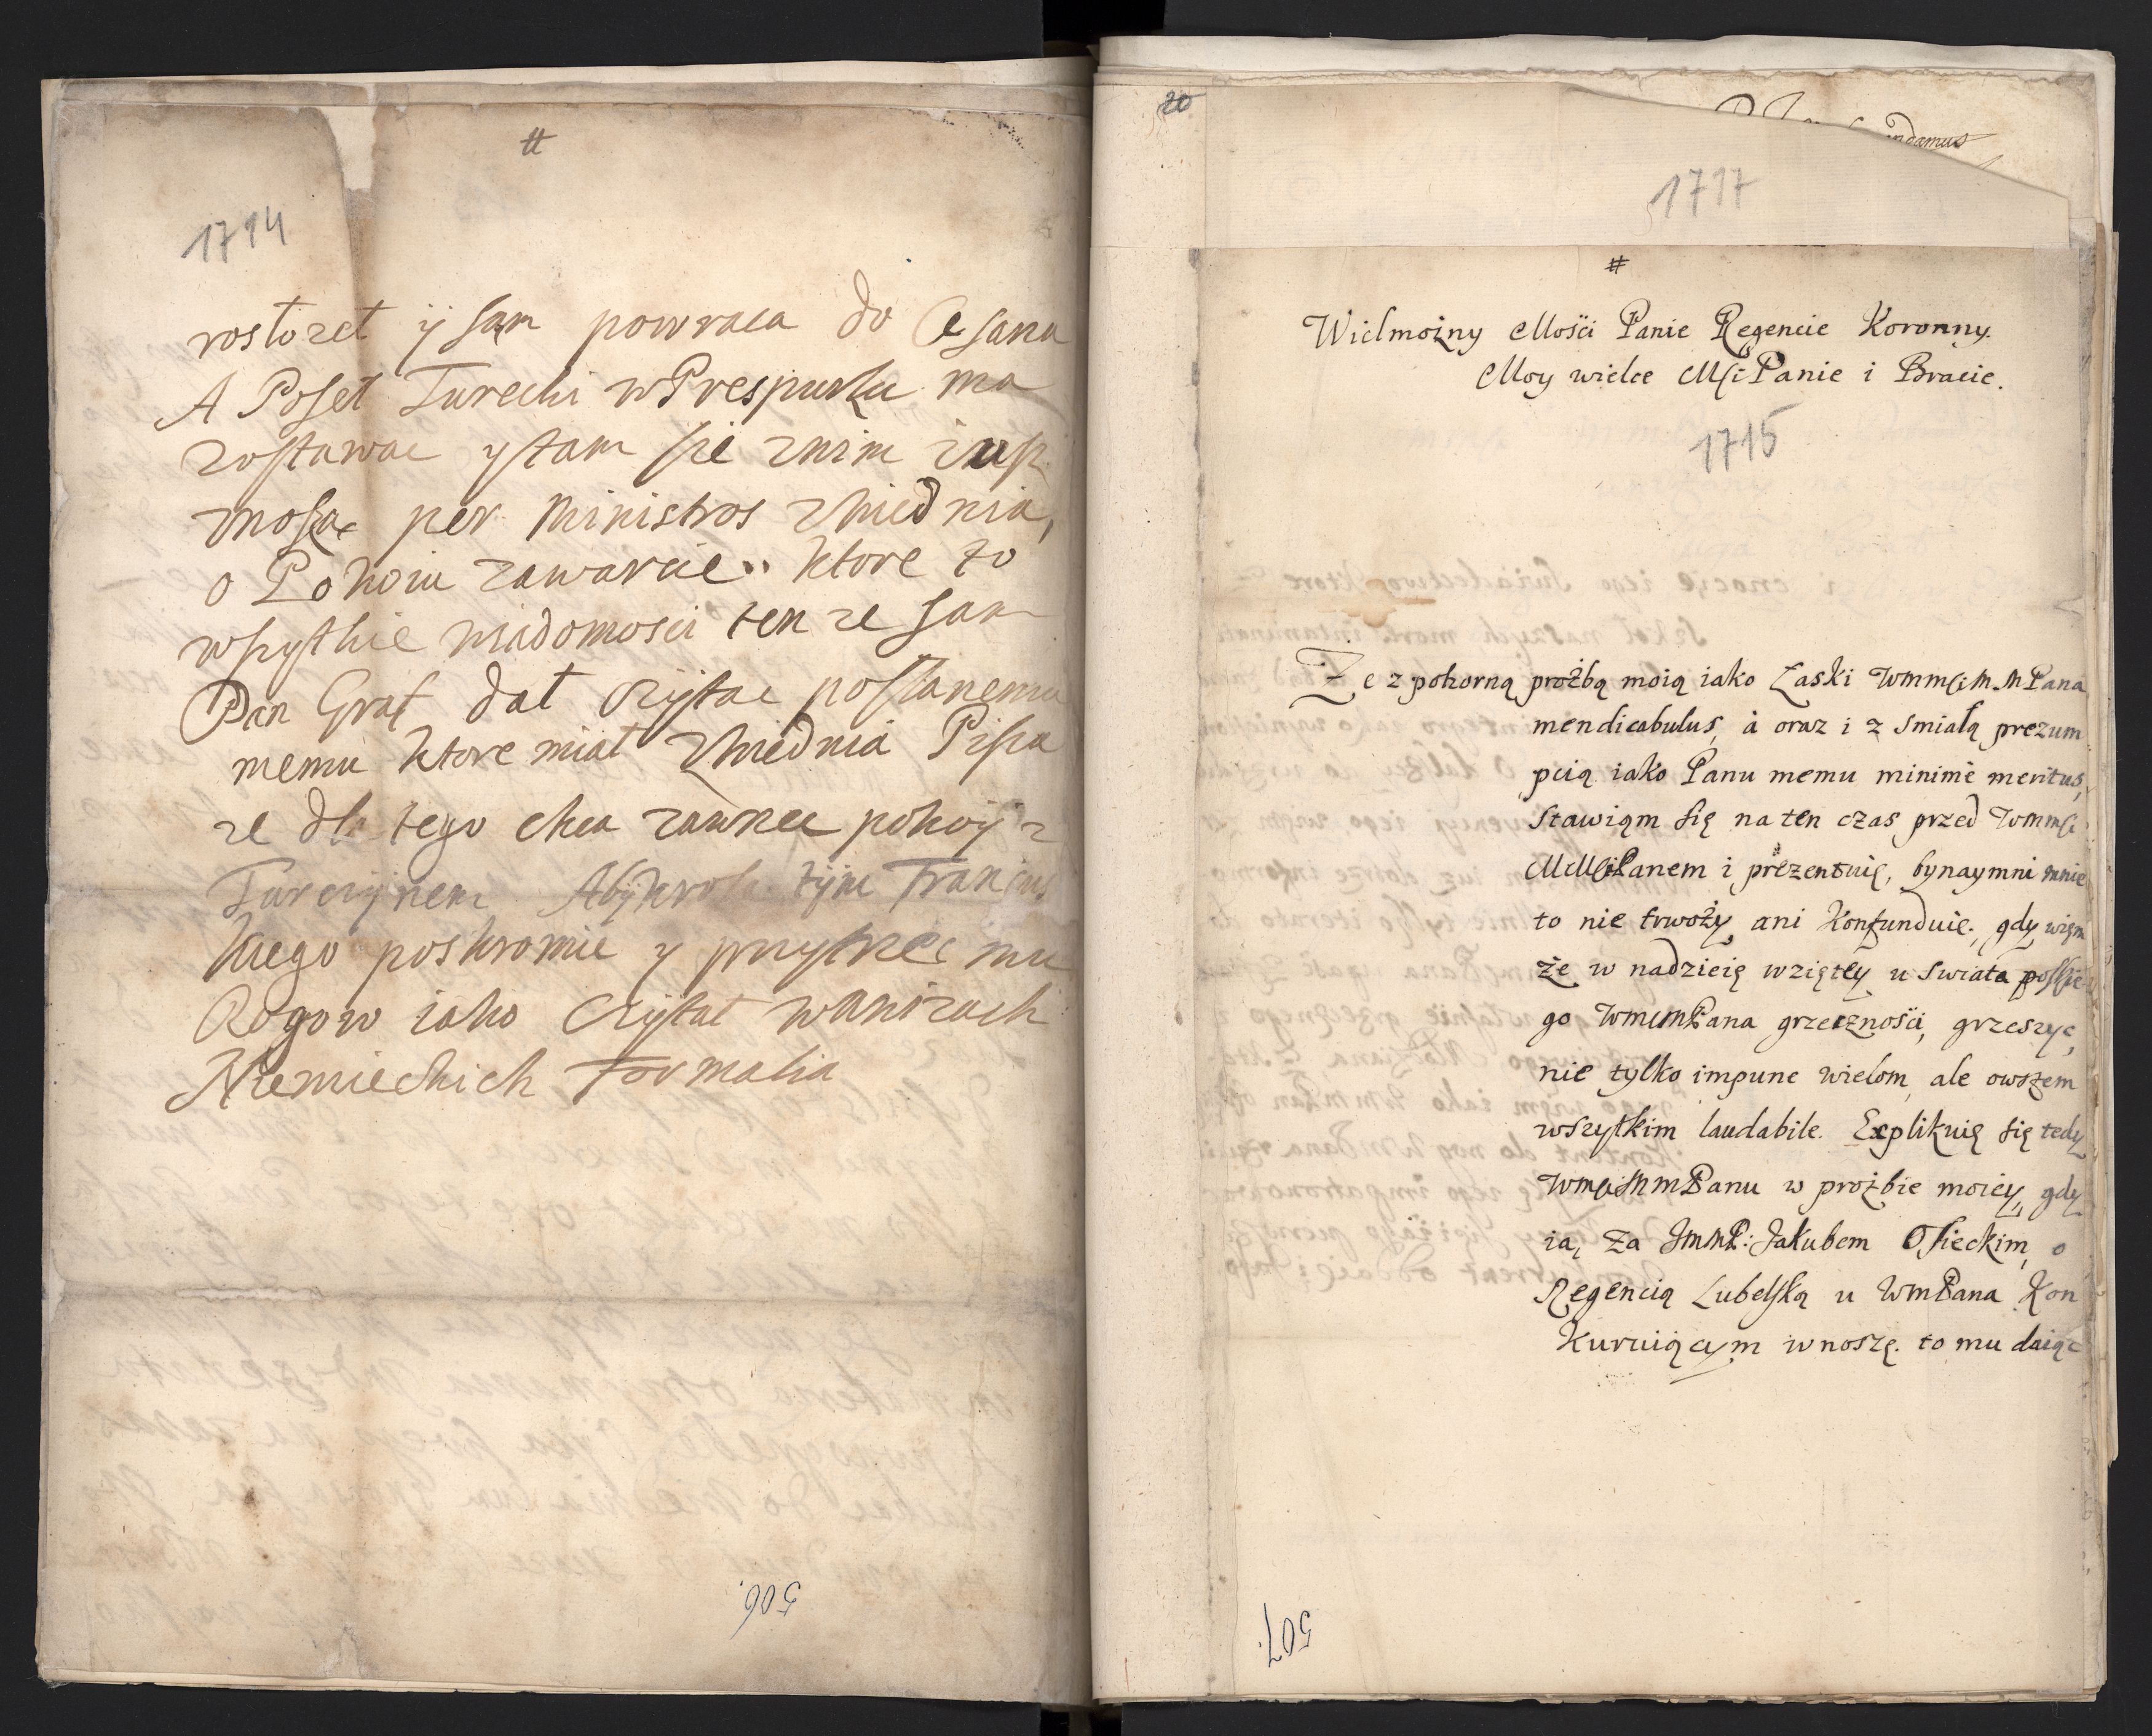 #
1714
rostozet y sam powraca do Cesara
A Poseł Turecki w Prespurku ma
zostawac y tam sie znim
znosac per Ministros Zwiednia,
o Pokoiu zawarcie.. ktore to
wszytkie wiadomosci ten ze sam
Pan Graf dał czÿtac posłanemu
memu ktore miał Zwiednia Pisza
ze dla tego chca zawrzec pokoÿ z
Turczÿnem Abÿ krola tÿm Francus
kiego poskromic y przytrzec mu
Rogow iako Czÿtał wawizach
Niemieckich Formalia
506.
20
ndamus
1717
#
Wielmożny Mości Panie Regencie Koronny.
Moy wielce Mści Panie i Bracie.
1715
Ze z pokorną prożbą moią iako Łaski WmmścimMPana
mendicabulus, à oraz i z smiałą prezum
pcią iako Panu memu minimè meritus,
stawiąm się na ten czas przed Wmmści
MMściPanem i prezentuię, bynaymni mnie
to nie trwoży ani Konfunduie, gdy wiem
że w nadzieię wziętey u swiata polskie
go WmmmPana grzeczności, grzeszyc,
nie tylko impune wielom, ale owszem
wszytkim laudabile. Explikuię się tedy
WmścimmPanu w prożbie moiey, gdy
ia, za JmmP: Jakubem Osieckim, o
Regencią Lubelską u WmPana Kon
kuruiącym wnoszę. to mu daiąc
507.